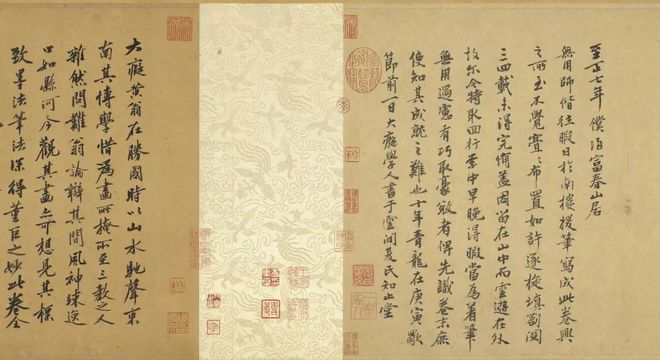 至正七年僕歸富春山居
無用師偕往暇日於南樓援筆寫成此卷興
之所至不覺亹亹布置如許逐旋填劄閱
三四載未得完備盖因留在山中而雲遊在外
故尔今特取回行李中早晚得暇當為着筆
無用過慮有巧取豪敚者俾先識卷末庶
使知其成就之難也十年青龍在庚寅歜
節前一日大癡學人書于雲間夏氏知止堂
大癡黃翁在勝國時以山水馳聲東
南其博學惜為畫所掩所至三教之人
雜然問難翁論辯其間風神竦逸
口如縣河今觀其畫亦可想見其標
致墨法筆法深得董巨之妙此卷全